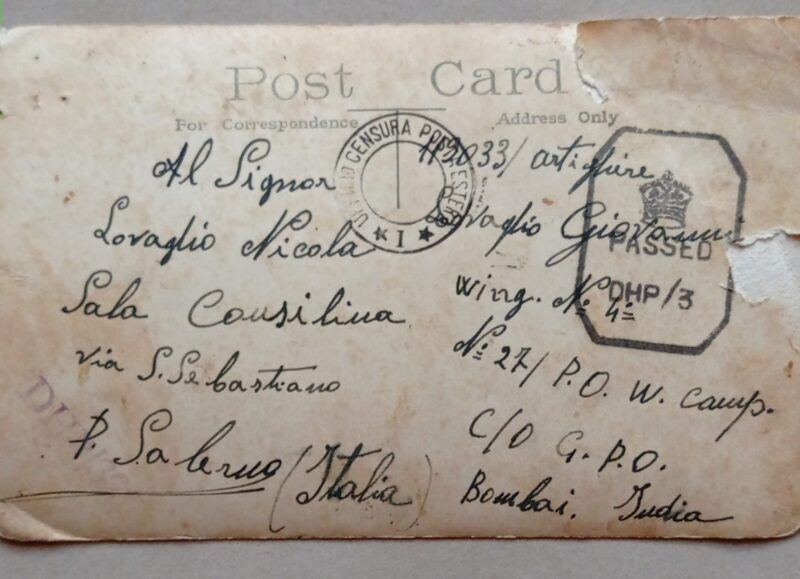 Post Card
For Correspondence
Address Only
CENSURA POSTA ESTERA
I
Al Signor
Lovaglio Nicola
Sala Consilina
via S. Sebastiano
P. Salerno (Italia)
/ artigliere
Lovaglio Giovanni
Wing. Nº 4º
Nº 27/ P.O.W. Camp.
C/O G.P.O.
Bombai. India
PASSED
DHP/3